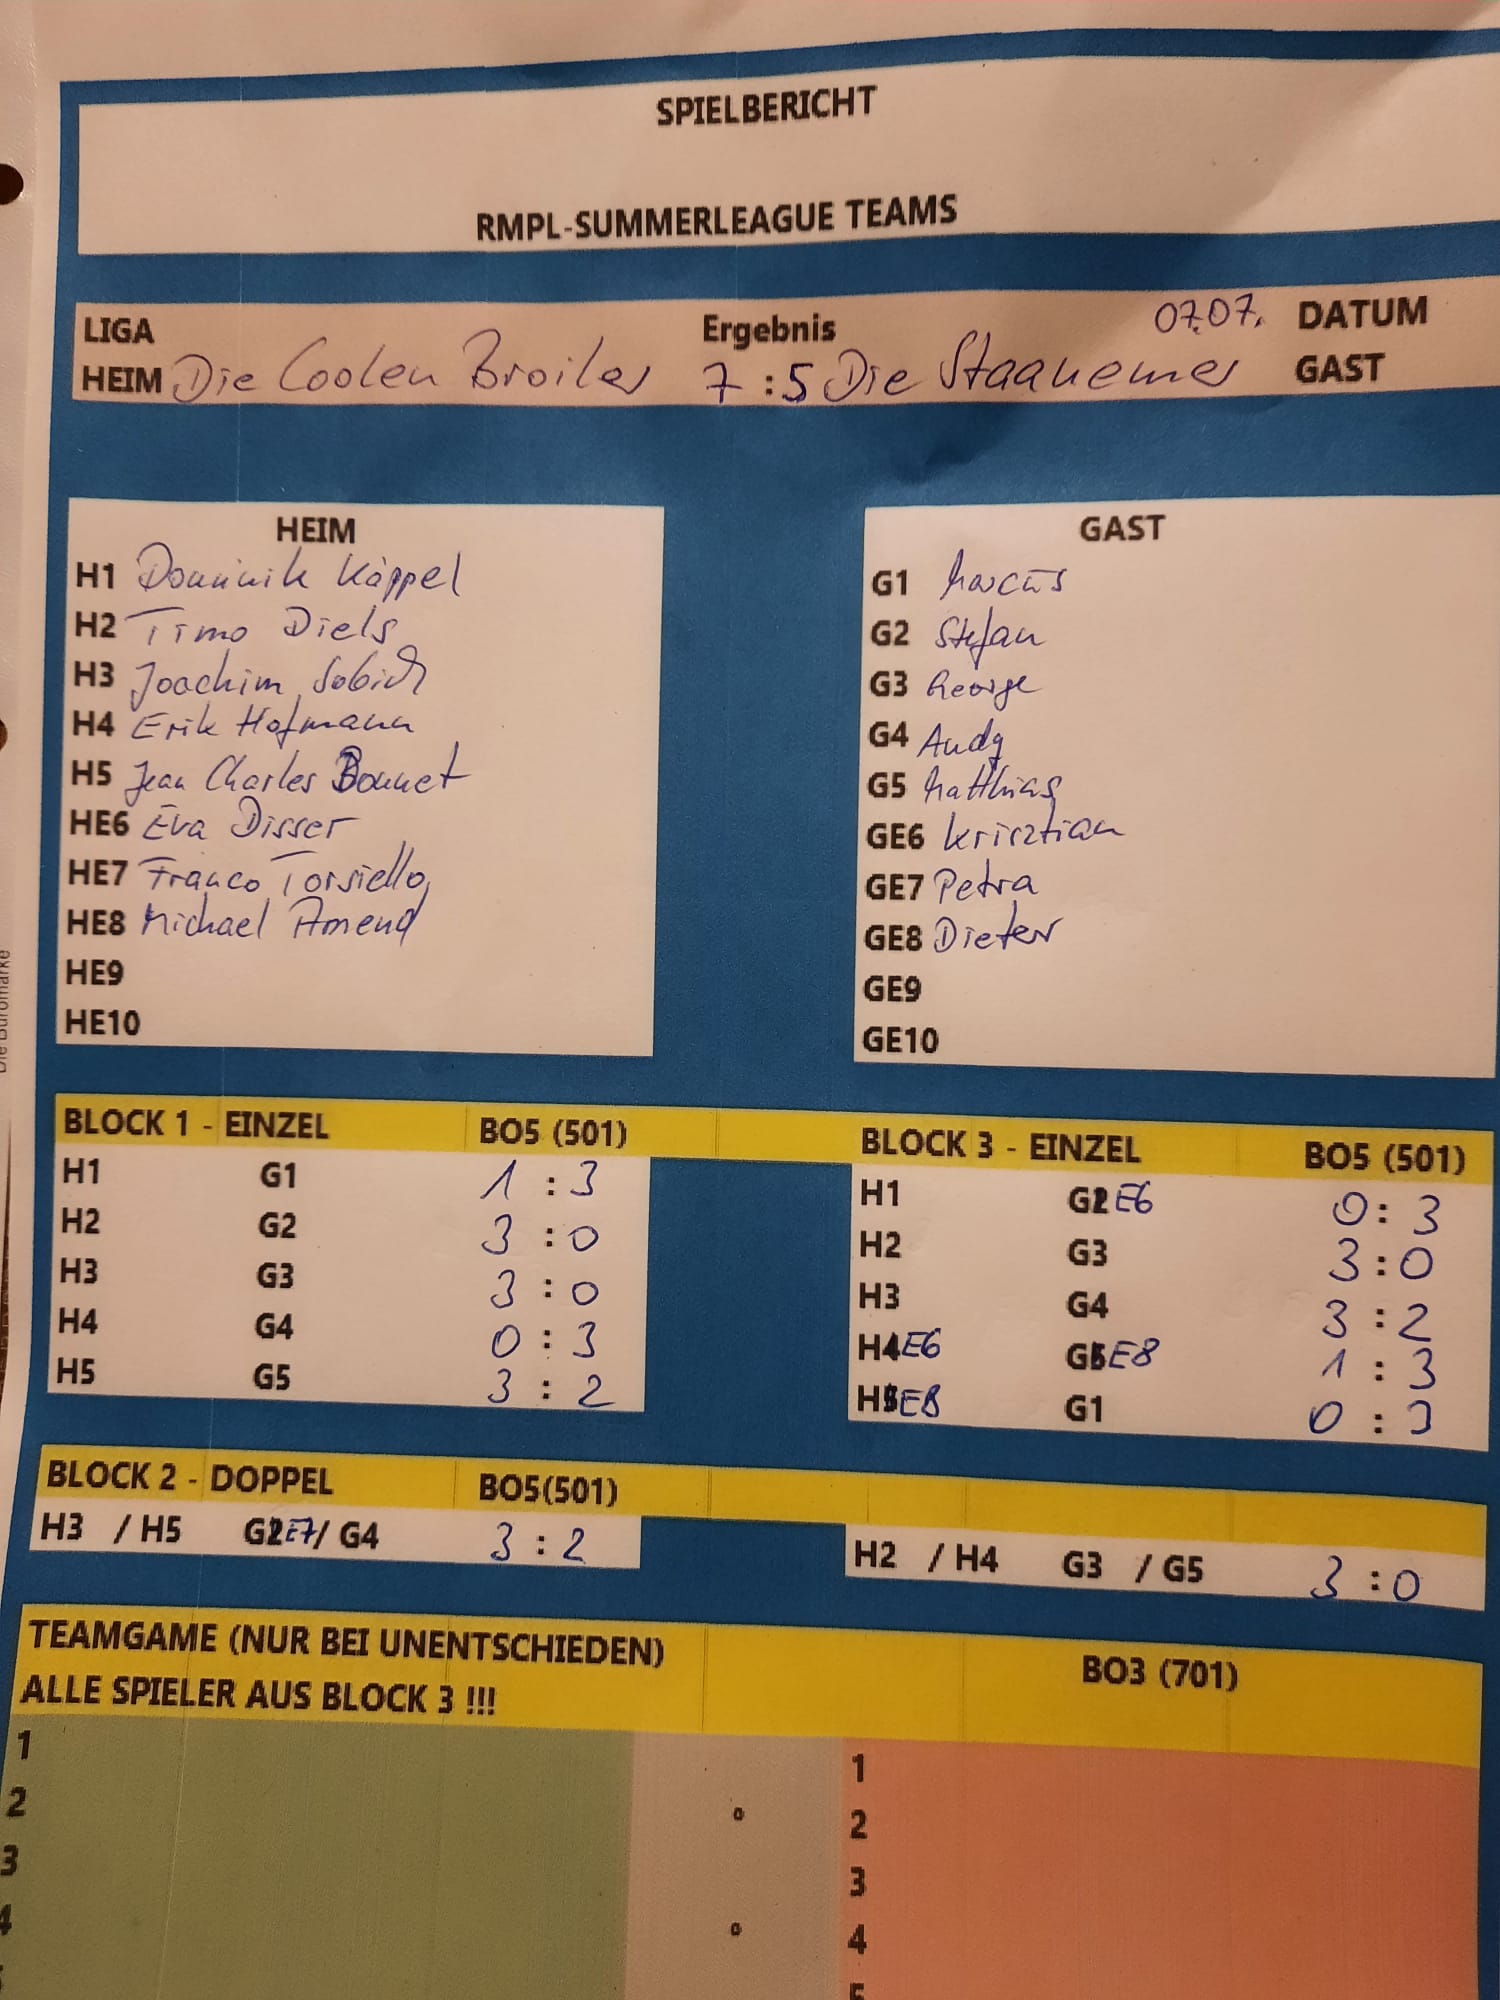 SPIELBERICHT
RMPL-SUMMERLEAGUE TEAMS
LIGA Ergebnis 07.07. DATUM
HEIM Die Coolen Broiler 7 : 5 Die Staanemer GAST
HEIM
H1 Dominik Käppel
H2 Timo Diels
H3 Joachim Sobich
H4 Erik Hofmann
H5 Jean Charles Bonnet
HE6 Eva Disser
HE7 Franco Torsiello
HE8 Michael Amend
HE9
HE10
GAST
G1 Marcus
G2 Stefan
G3 George
G4 Andy
G5 Matthias
GE6 Krisztian
GE7 Petra
GE8 Dieter
GE9
GE10
BLOCK 1 - EINZEL BO5 (501)
H1 G1 1 : 3
H2 G2 3 : 0
H3 G3 3 : 0
H4 G4 0 : 3
H5 G5 3 : 2
BLOCK 3 - EINZEL BO5 (501)
H1 GE6 0 : 3
H2 G3 3 : 0
H3 G4 3 : 2
HE6 GE8 1 : 3
HE8 G1 0 : 3
BLOCK 2 - DOPPEL BO5(501)
H3 / H5 GE7/ G4 3 : 2
H2 / H4 G3 / G5 3 : 0
TEAMGAME (NUR BEI UNENTSCHIEDEN) BO3 (701)
ALLE SPIELER AUS BLOCK 3 !!!
1 1
2 2
3 3
4 4
5